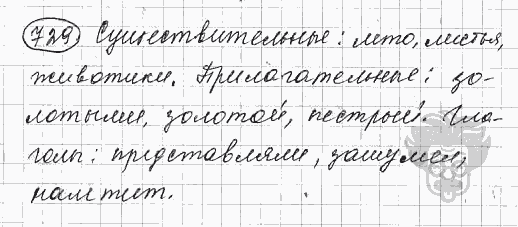 729 Существительные: лето, листья,
животики. Прилагательные: зо-
лотыми, золотой, пестрый. Гла-
голы: представляли, зашумел,
наметит.